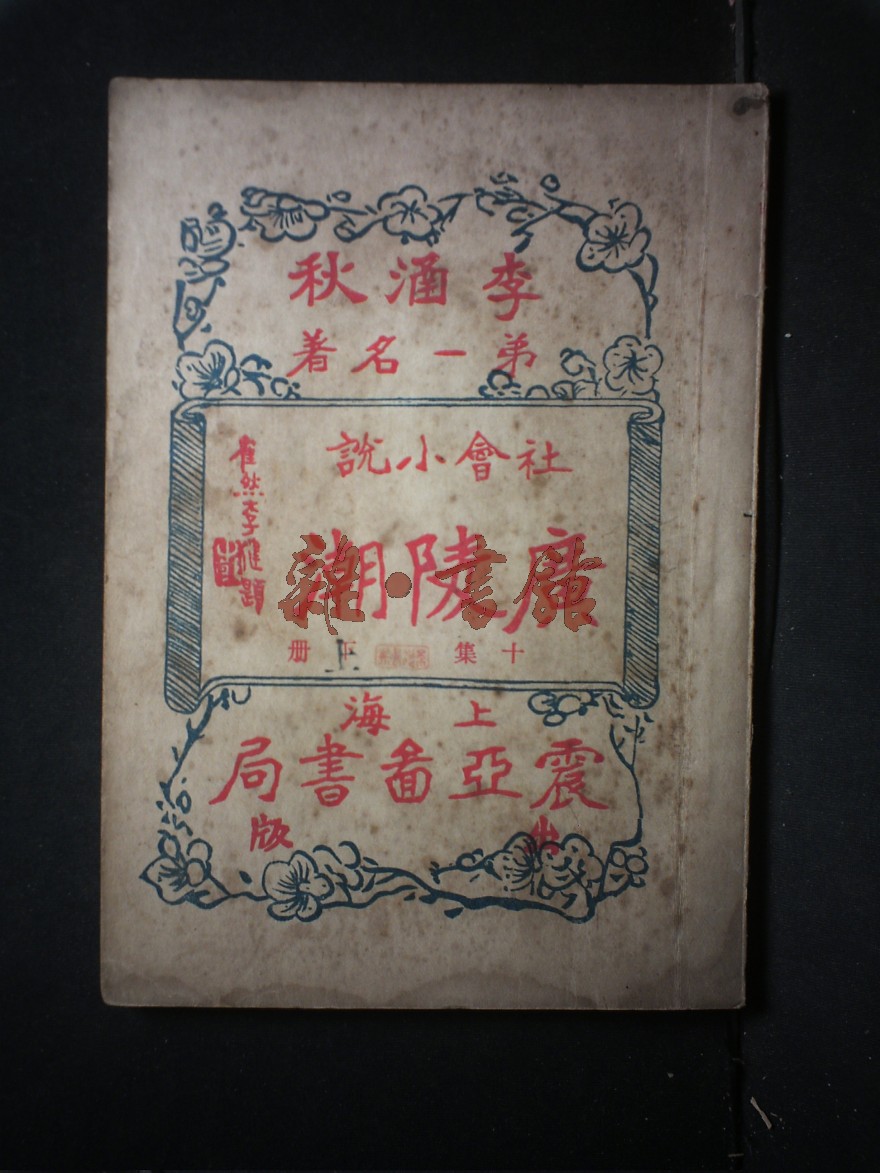 李涵秋
弟一名著
社會小說
廣陵潮
十集 下册
雀然李雄題
上海
震亞啚書局
出版
雜·書館